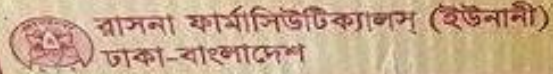 রাসনা ফার্মাসিউটিক্যালস্ (ইউনানী)
ঢাকা-বাংলাদেশ